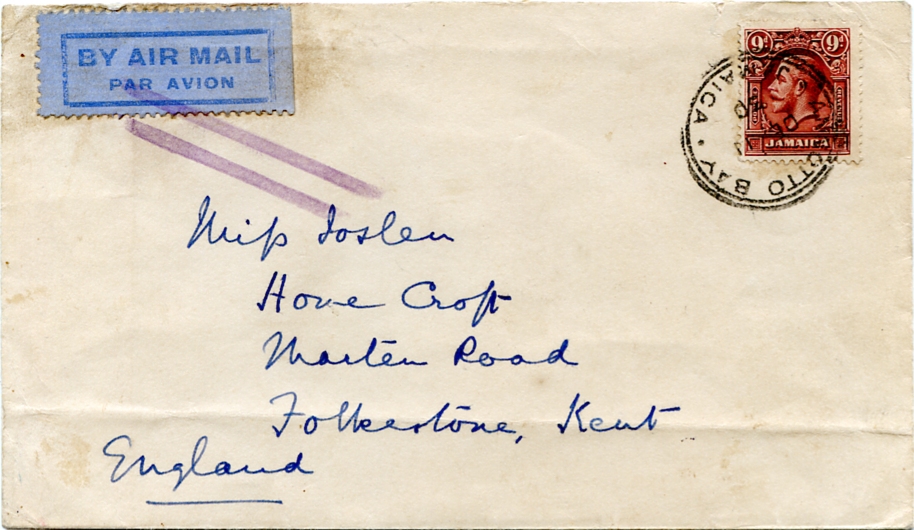 BY AIR MAIL
PAR AVION
9d 9d
JAMAICA
ANNOTTO BAY · JAMAICA ·
Miss Joslen
Hove Croft
Marten Road
Folkestone, Kent
England